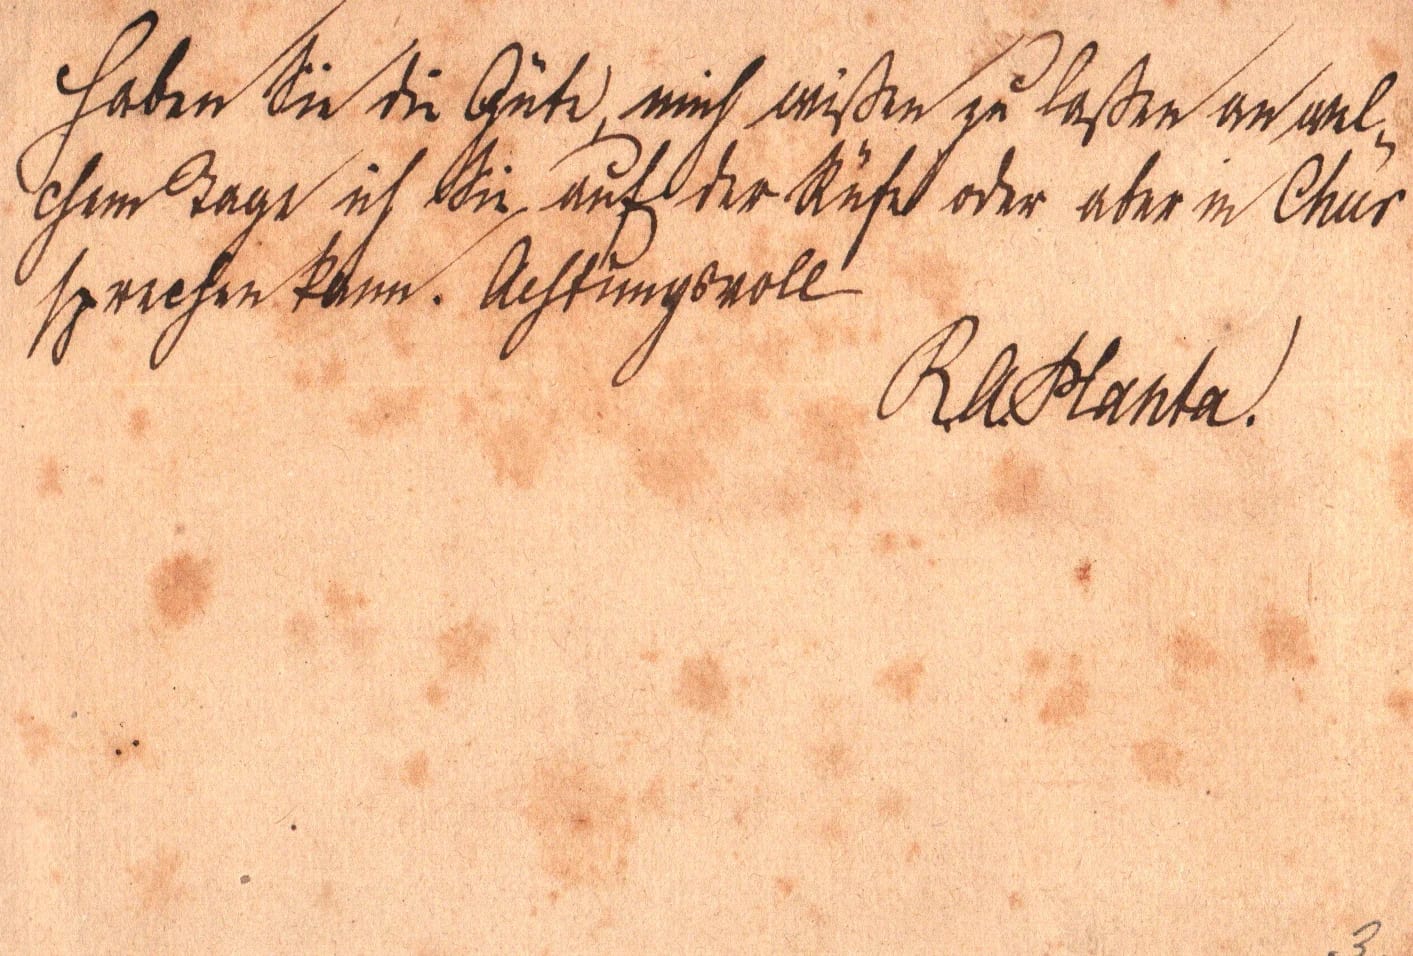 Haben Sie die Güte, mich wißen zu laßen an wel-
chem Tage ich Sie auf der Rüfe oder aber in Chur
sprechen kann. Achtungsvoll
R. A. Planta.
3.